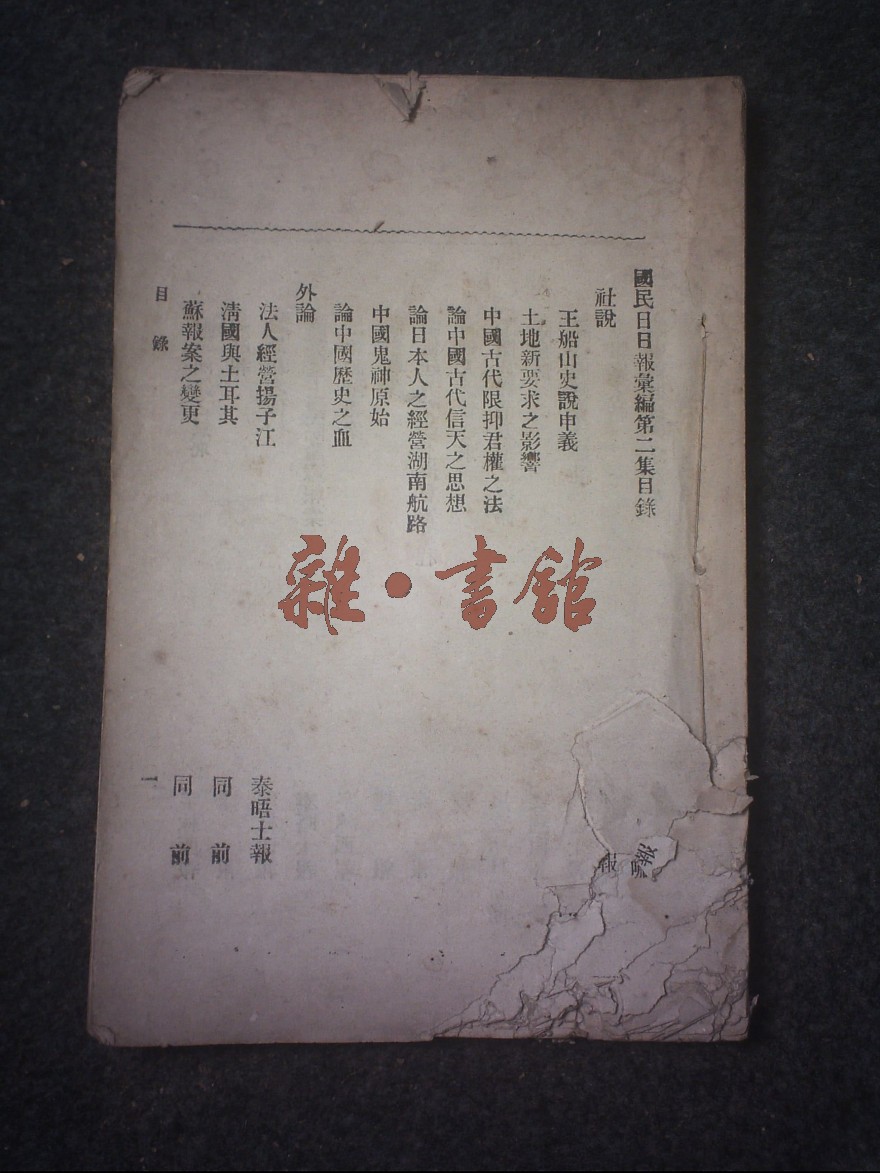 國民日日報彙編第二集目錄
社說
王船山史說申義
土地新要求之影響
中國古代限抑君權之法
論中國古代信天之思想
論日本人之經營湖南航路
中國鬼神原始
論中國歷史之血
外論
法人經營揚子江 泰晤士報
清國與土耳其 同前
蘇報案之變更 同前
目錄 一
報
雜·書館